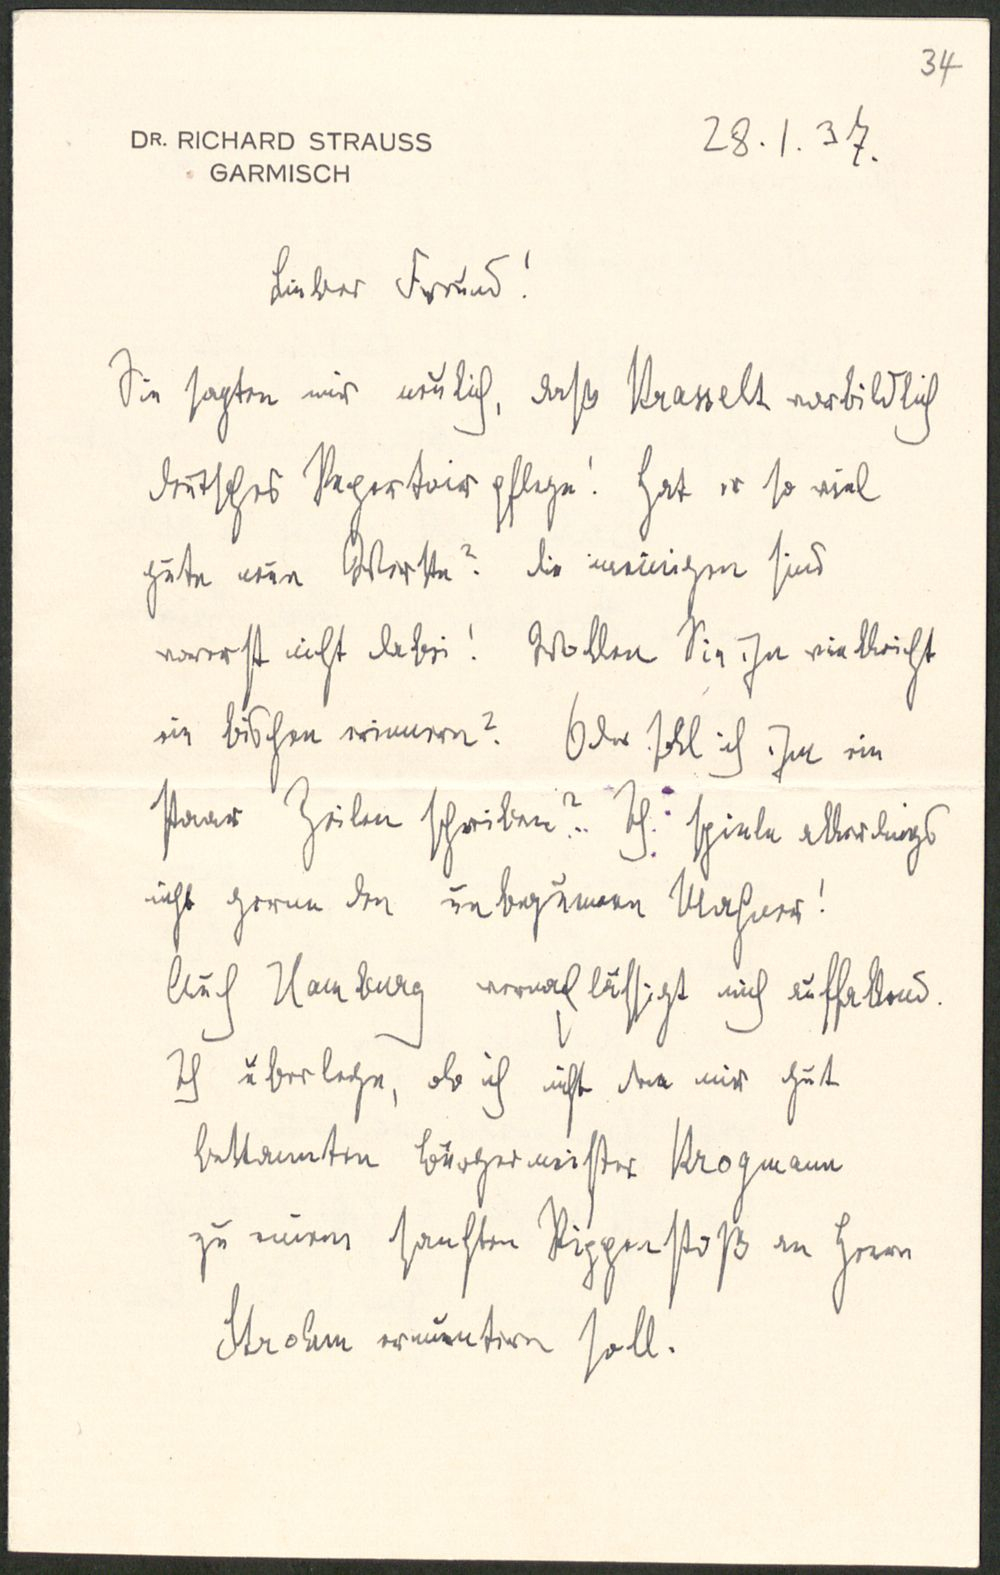 34
DR. RICHARD STRAUSS
GARMISCH
28.1.37.
Lieber Freund!
Sie sagten mir neulich, daß Krasselt vorbildlich
deutsches Repertoir pflege! Hat er so viel
gute neue Werke? Die meinigen sind
vorerst nicht dabei! Wollen Sie ihn vielleicht
ein bischen erinnern? Oder soll ich ihm ein
Paar Zeilen schreiben? Ich spiele allerdings
nicht gerne den unbequemen Mahner!
Auch Hamburg vernachlässigt mich auffallend.
Ich überlege, ob ich nicht den mir gut
bekannten Bürgermeister Krogmann
zu einem sanften Rippenstoß an Herrn
Strohm ermuntern soll.